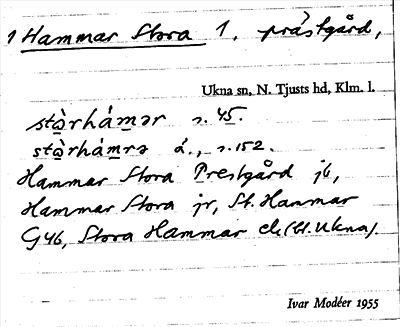 1 Hammar Stora 1. prästgård,
Ukna sn, N. Tjusts hd, Klm. l.
stòrhámər s. 45.
stòrhámrə á., s. 152.
Hammar Stora Prestgård jb,
Hammar Stora jr, St. Hammar
G46, Stora Hammar ek (bl. Ukna).
Ivar Modéer 1955